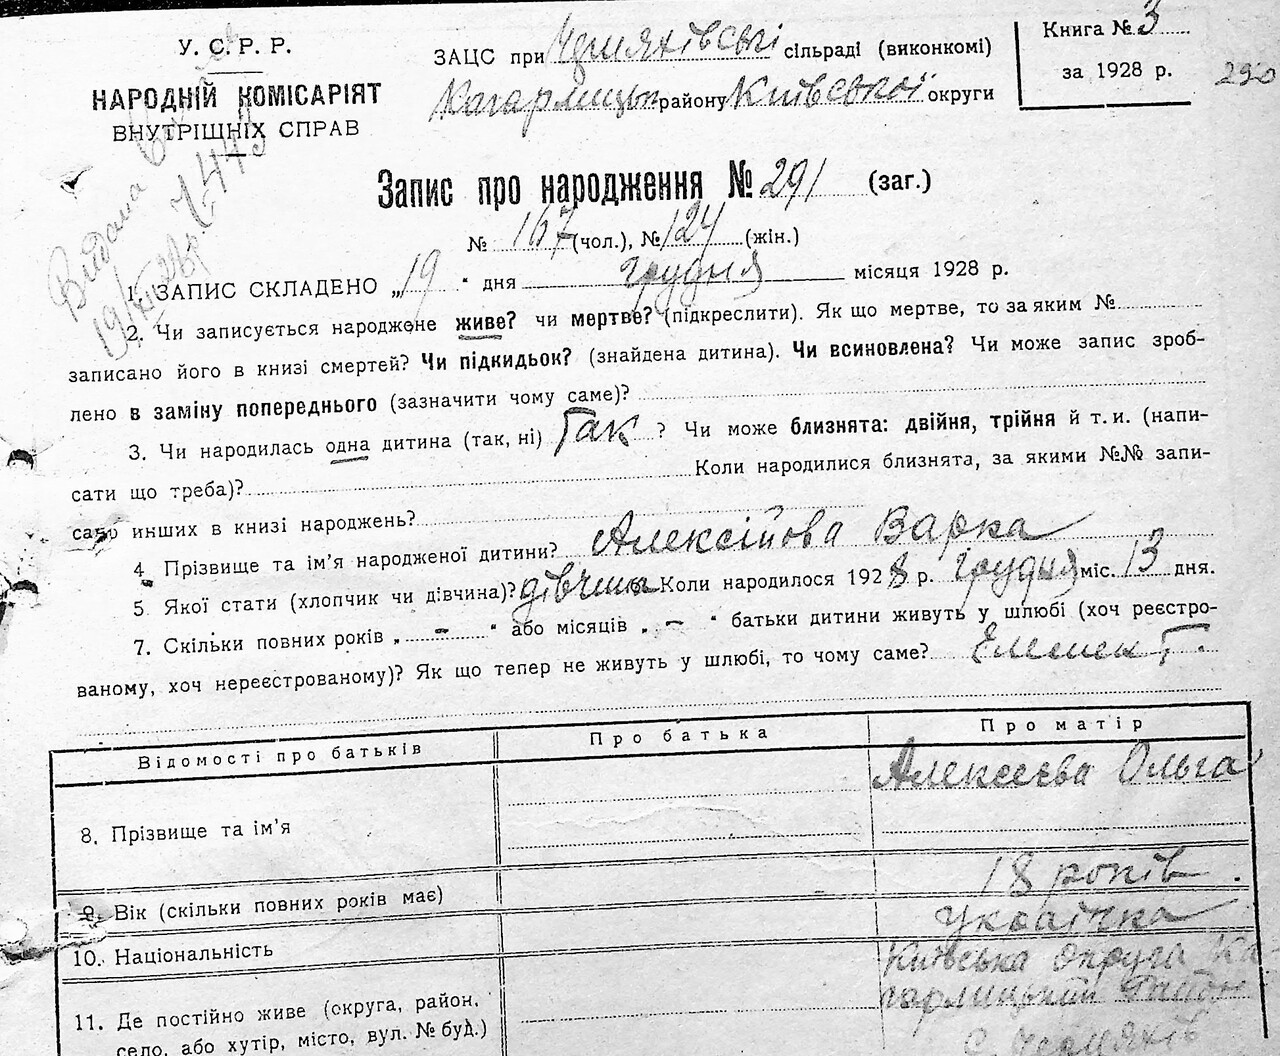 У. С. Р. Р.
НАРОДНІЙ КОМІСАРІЯТ
ВНУТРІШНІХ СПРАВ
ЗАЦС при Черняхівські сільраді (виконкомі)
Кагарлицьк району Київської округи
Книга № 3
за 1928 р.
250
Видана
Запис про народження № 291 (заг.)
№ 167 (чол.), № 124 (жін.)
1. ЗАПИС СКЛАДЕНО „19" дня грудня місяця 1928 р.
2. Чи записується народжене живе? чи мертве? (підкреслити). Як що мертве, то за яким №
записано його в книзі смертей? Чи підкидьок? (знайдена дитина). Чи всиновлена? Чи може запис зроб-
лено в заміну попереднього (зазначити чому саме)?
3. Чи народилась одна дитина (так, ні) Так ? Чи може близнята: двійня, трійня й т. и. (напи-
сати що треба)? Коли народилися близнята, за якими №№ запи-
сано инших в книзі народжень?
4 Прізвище та ім'я народженої дитини? Алексійова Варка
5 Якої стати (хлопчик чи дівчина)? дівчина Коли народилося 1928 р. грудня міс. 13 дня.
7. Скільки повних років „ - " або місяців „ - " батьки дитини живуть у шлюбі (хоч реєстро-
ваному, хоч нереєстрованому)? Як що тепер не живуть у шлюбі, то чому саме?
Відомості про батьків Про батька Про матір
8. Прізвище та ім'я Алексєєва Ольга
9. Вік (скільки повних років має) 18 років.
10. Національність Українка
11. Де постійно живе (округа, район, Київська Округа Ка
село, або хутір, місто, вул. № буд.) гарлицький Район
с. Черняхів